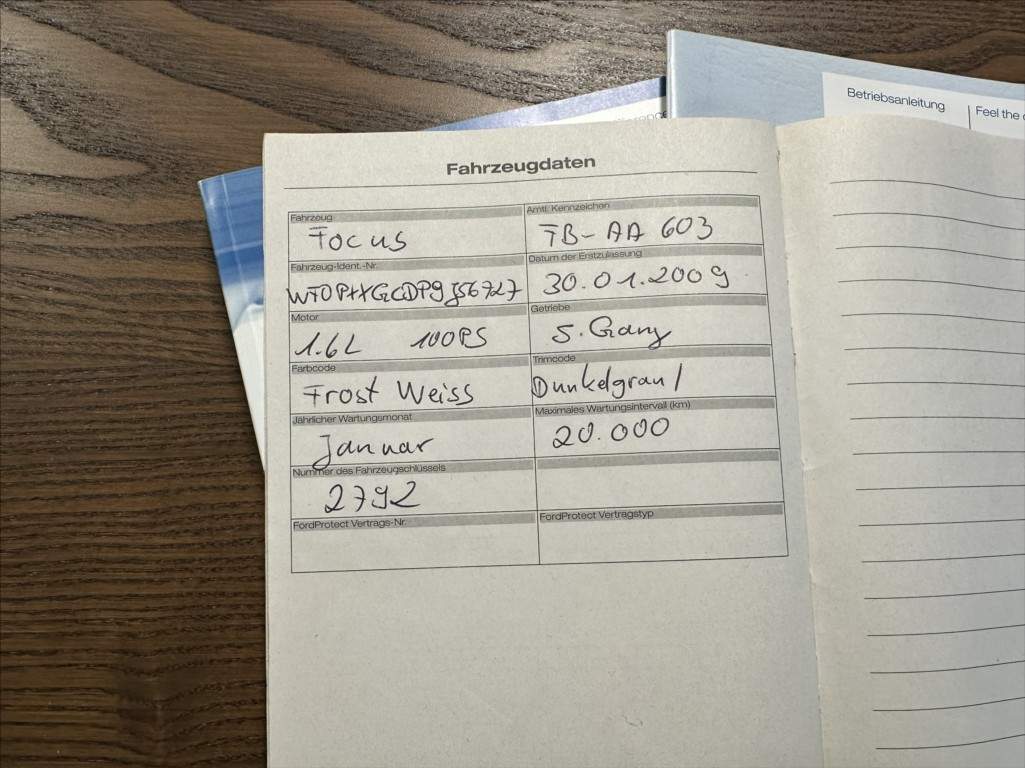 Betriebsanleitung
Feel the
Fahrzeugdaten
Fahrzeug
Focus
Amtl. Kennzeichen
FB-AA 603
Fahrzeug-Ident.-Nr.
Datum der Erstzulassung
30.01.2009
Motor
1.6L 100PS
Getriebe
5. Gang
Farbcode
Frost Weiss
Trimcode
Dunkelgrau /
Jährlicher Wartungsmonat
Januar
Maximales Wartungsintervall (km)
20.000
Nummer des Fahrzeugschlüssels
2792
FordProtect Vertrags-Nr.
FordProtect Vertragstyp